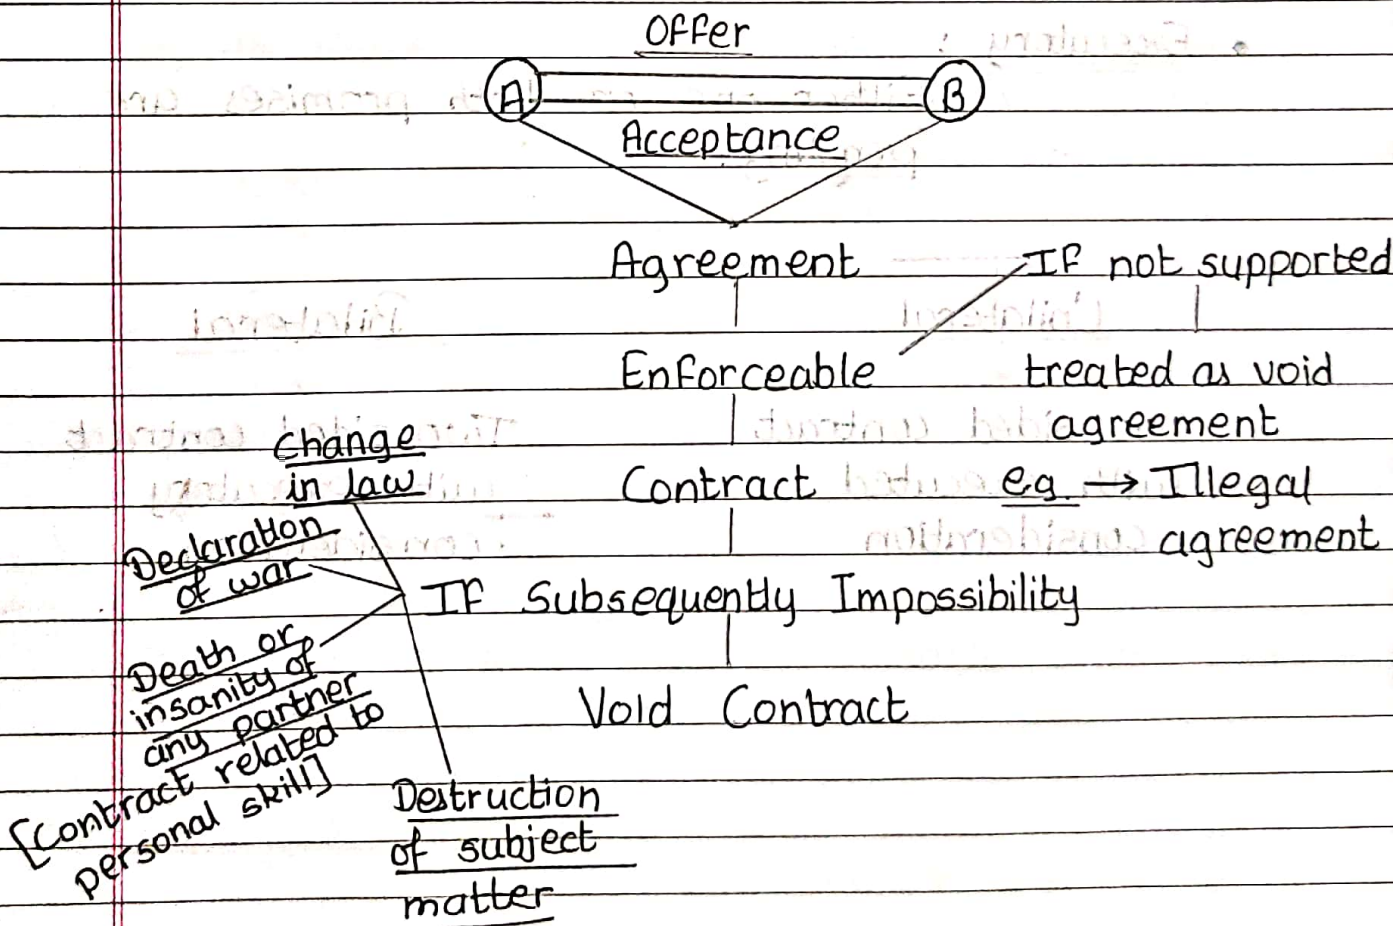 Offer
A
B
Acceptance
Agreement
If not supported
Enforceable
treated as void
agreement
Change
in law
Contract
eg. → Illegal
agreement
Declaration
of war
If Subsequently Impossibility
Death or
insanity of
any partner
[Contract related to
personal skill]
Void Contract
Destruction
of subject
matter